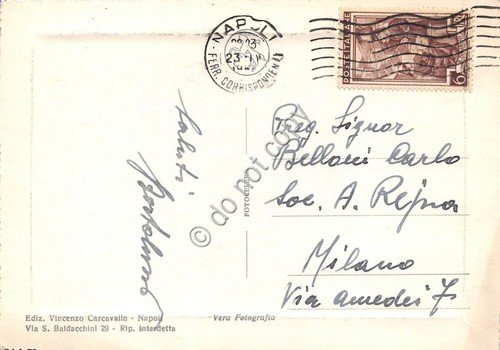 NAPOLI
FERR. CORRISPONDENZE
POSTE ITALIANE
Saluti
Preg. Signor
Belloni Carlo
Soc. A. Rejna
Milano
Via Amedei 7
© do not copy
Ediz. Vincenzo Carcavallo - Napoli
Via S. Baldacchini 29 - Rip. interdetta
Vera Fotografia